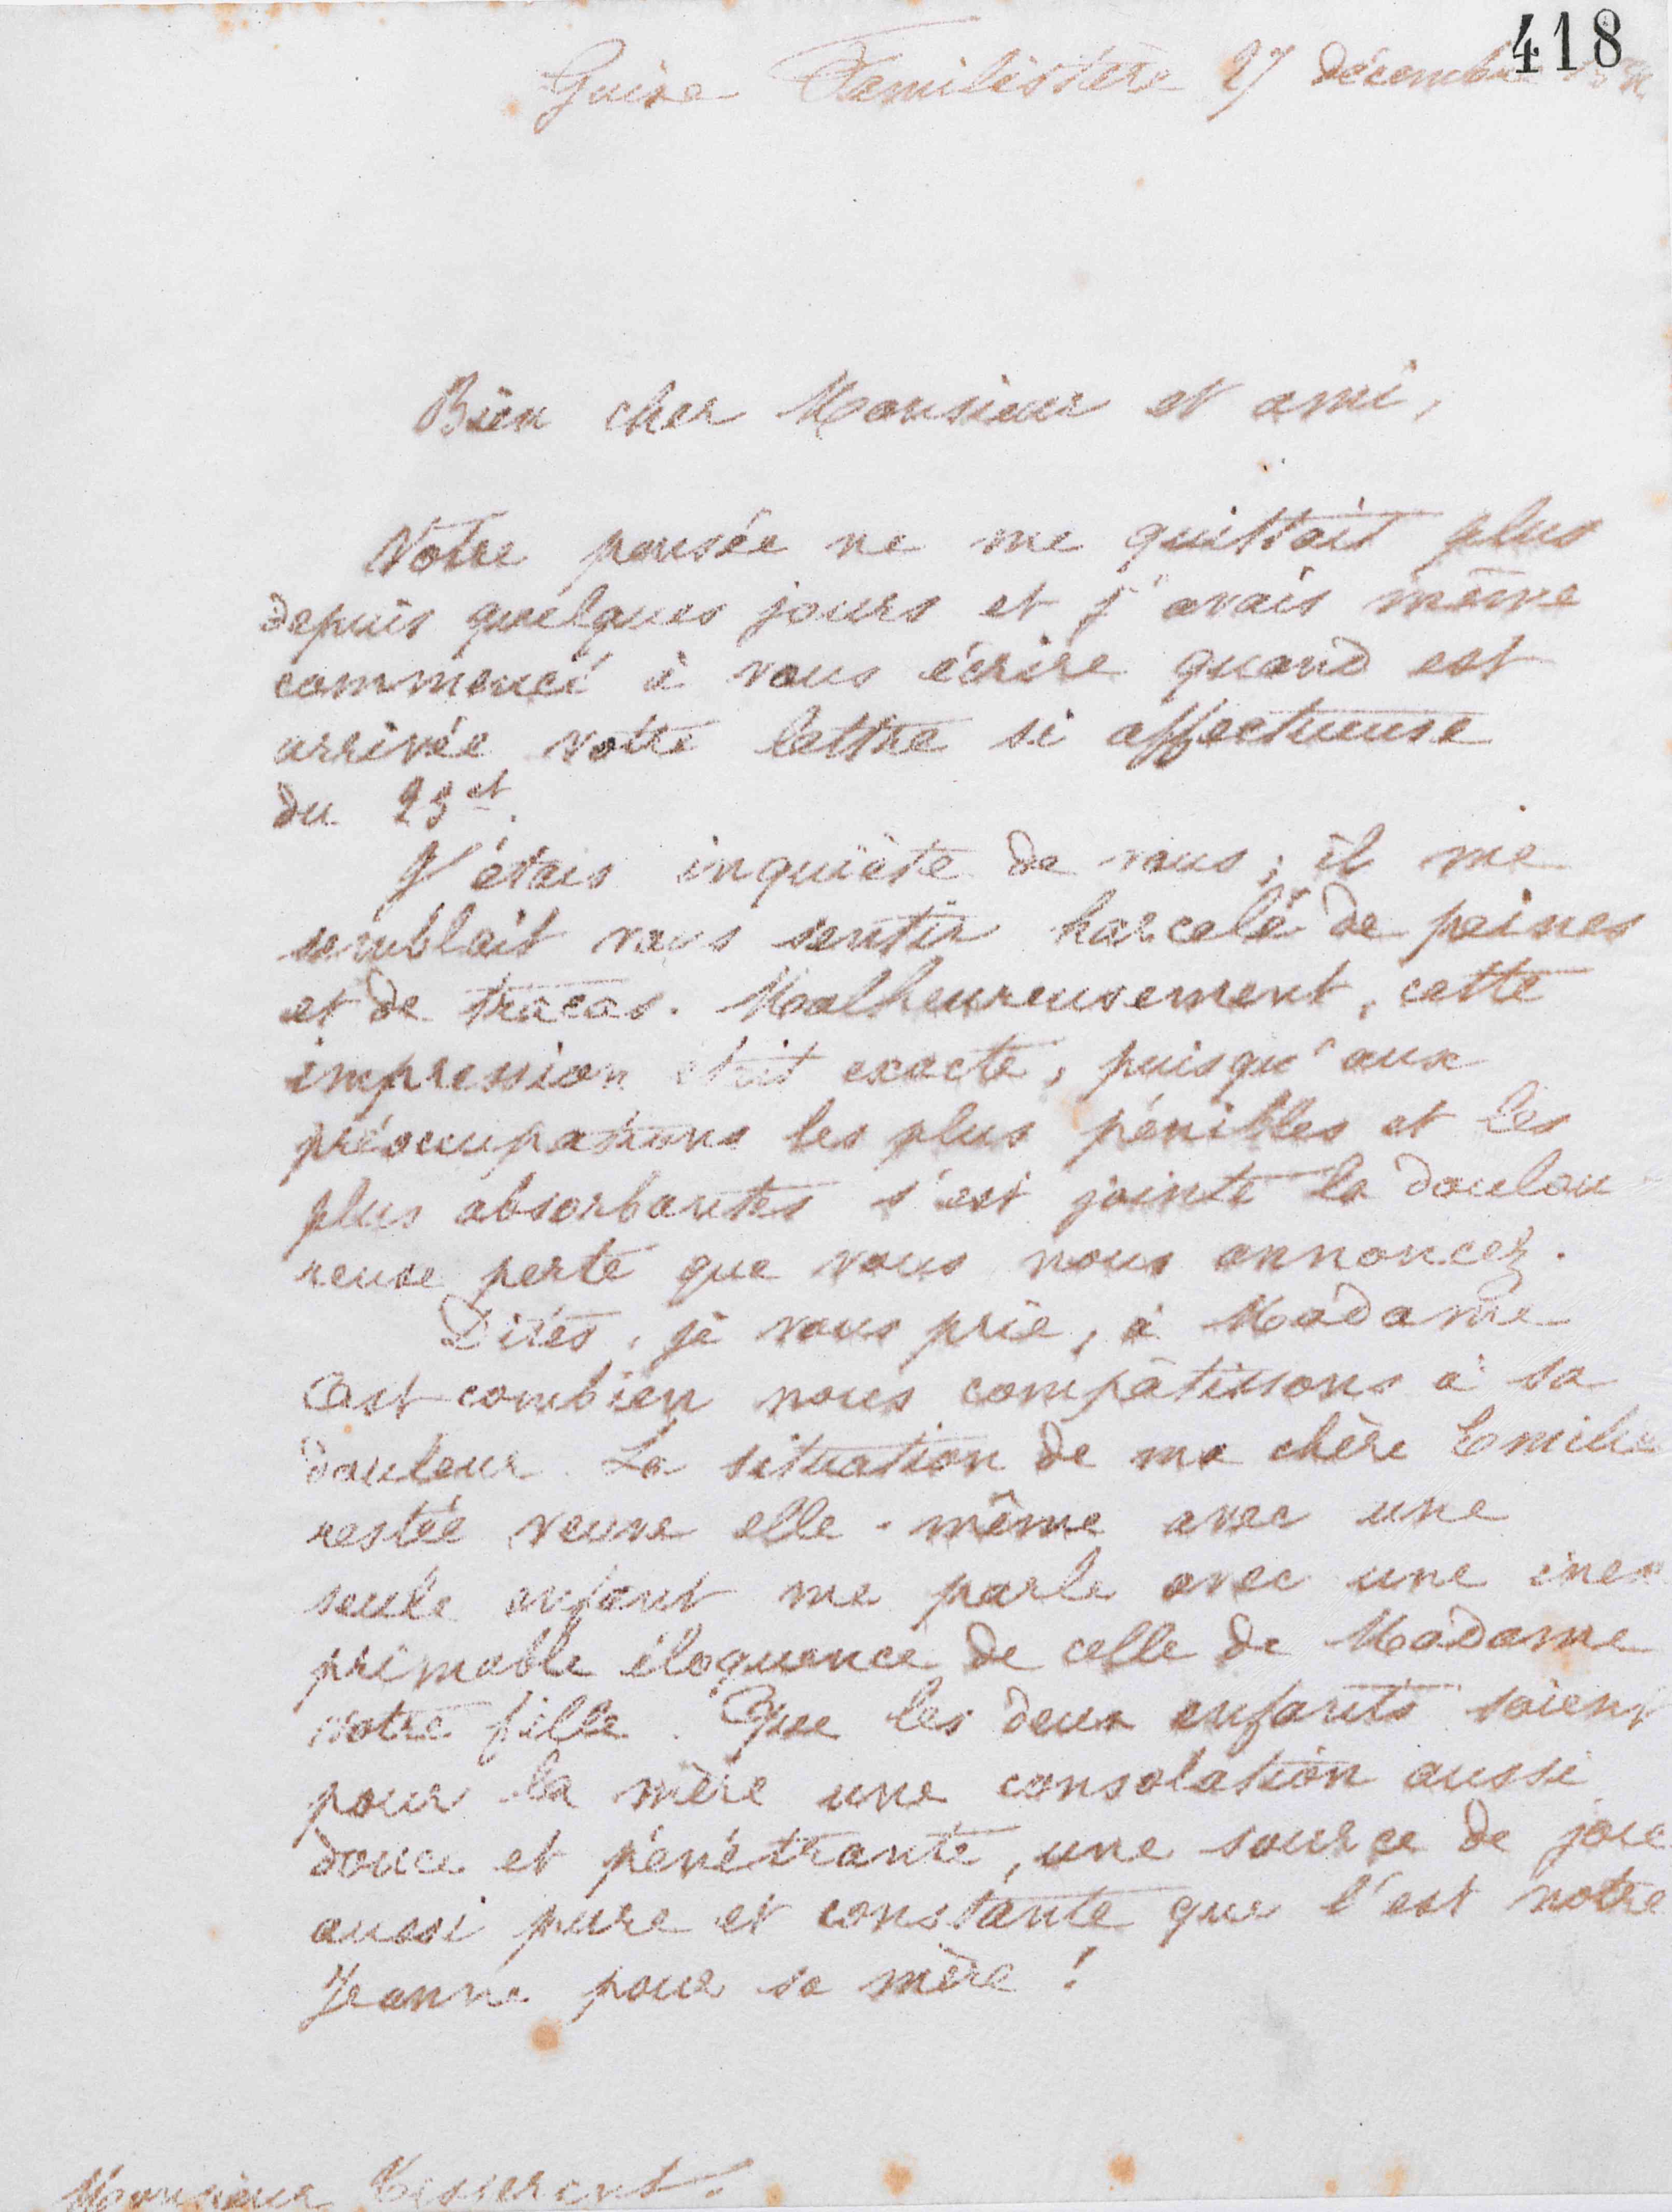 418
Guise Familistère 27 décembre
Bien cher Monsieur et ami,
Votre pensée ne me quittait plus
depuis quelques jours et j'avais même
commencé à vous écrire quand est
arrivée votre lettre si affectueuse
du 25 ct.
J'étais inquiète de vous ; il me
semblait vous sentir harcelé de peines
et de tracas. Malheureusement, cette
impression était exacte, puisqu'aux
préoccupations les plus pénibles et les
plus absorbantes s'est jointe la doulou
reuse perte que vous nous annoncez.
Dites, je vous prie, à Madame
combien nous compâtissons à sa
douleur. La situation de ma chère Emilie
restée veuve elle-même avec une
seule enfant me parle avec une inex
primable éloquence de celle de Madame
votre fille. Que les deux enfants soient
pour la mère une consolation aussi
douce et pénétrante, une source de joie
aussi pure et constante que l'est notre
Jeanne pour sa mère !
Monsieur Tisserant.